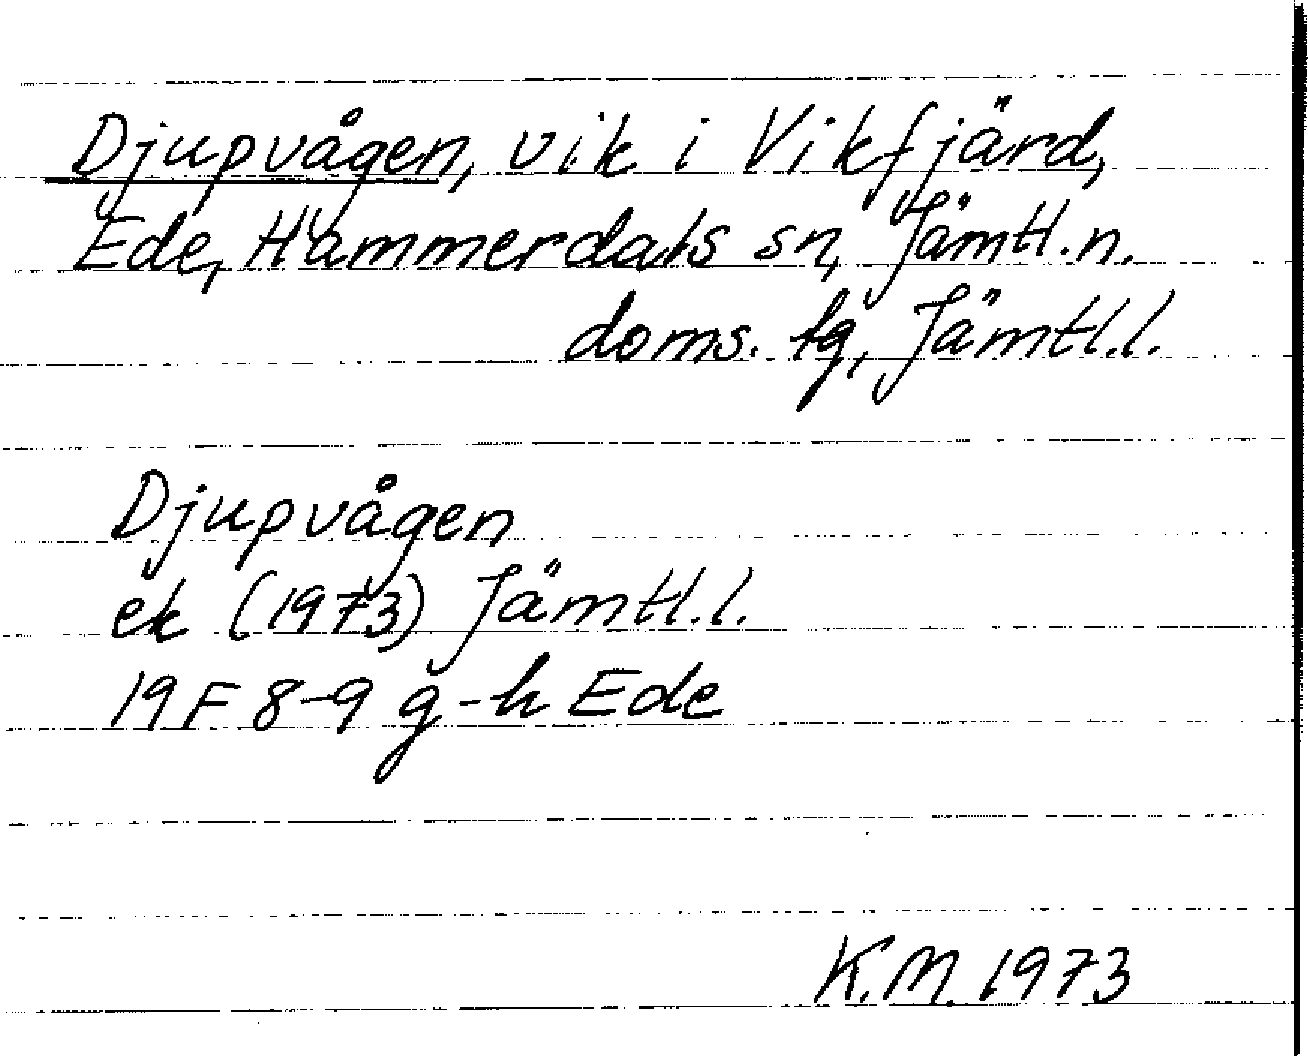 Djupvågen, vik i Vikfjärd,
Ede, Hammerdals sn, Jämtl. n.
doms. tg, Jämtl. l.
Djupvågen
ek (1973) Jämtl. l.
19 F 8-9 g-h Ede
K.M. 1973